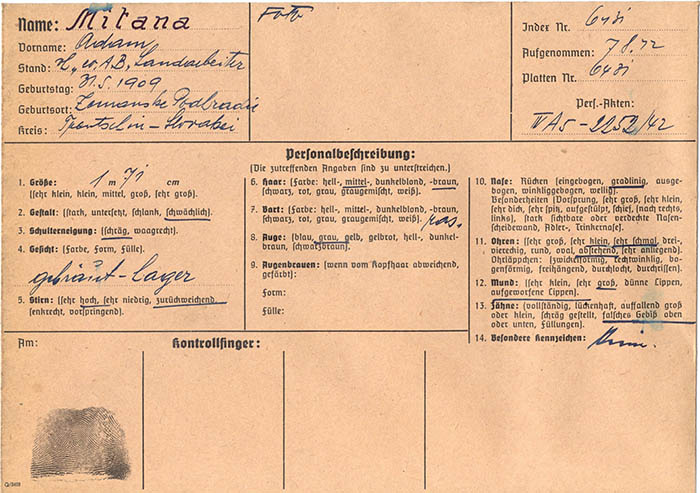 Name: Mitana
Vorname: Adam
Stand: Landarbeiter
Geburtstag: 31.5.1909
Geburtsort: Zemanske Podhradie
Kreis: Trentschin – Slovakei
Foto
Index Nr. 6431
Aufgenommen: 7.8.42
Platten Nr. 6431
Pers.-Akten:
IV A5 – 2252/42
Personalbeschreibung:
(Die zutreffenden Angaben sind zu unterstreichen.)
1. Größe: 1 m 71 cm
(sehr klein, klein, mittel, groß, sehr groß).
2. Gestalt: (stark, untersetzt, schlank, schwächlich).
3. Schulterneigung: (schräg, waagrecht).
4. Gesicht: (Farbe, Form, Fülle).
gebräunt – hager
5. Stirn: (sehr hoch, sehr niedrig, zurückweichend,
senkrecht, vorspringend).
6. Haar: (Farbe: hell-, mittel-, dunkelblond, -braun,
schwarz, rot, grau, graugemischt, weiß).
7. Bart: (Farbe: hell-, mittel-, dunkelblond, -braun,
schwarz, rot, grau, graugemischt, weiß). ras.
8. Auge: (blau, grau, gelb, gelbrot, hell-, dunkel-
braun, schwarzbraun).
9. Augenbrauen: (wenn vom Kopfhaar abweichend,
gefärbt):
Form:
Fülle:
10. Nase: Rücken (eingebogen, gradlinig, ausge-
bogen, winkliggebogen, wellig).
Besonderheiten (Vorsprung, sehr groß, sehr klein,
sehr dick, sehr spitz, aufgestülpt, schief, (nach rechts,
links), stark sichtbare oder verdeckte Nasen-
scheidewand, Adler-, Trinkernase).
11. Ohren: (sehr groß, sehr klein, sehr schmal, drei-
viereckig, rund, oval, abstehend, sehr anliegend).
Ohrläppchen: (zwickelförmig, rechtwinklig, bo-
genförmig, freihängend, durchlocht, durchrissen).
12. Mund: (sehr klein, sehr groß, dünne Lippen,
aufgeworfene Lippen).
13. Zähne: (vollständig, lückenhaft, auffallend groß
oder klein, schräg gestellt, falsches Gebiß oben
oder unten, Füllungen).
14. Besondere Kennzeichen: keine.
Am:
Kontrollfinger: